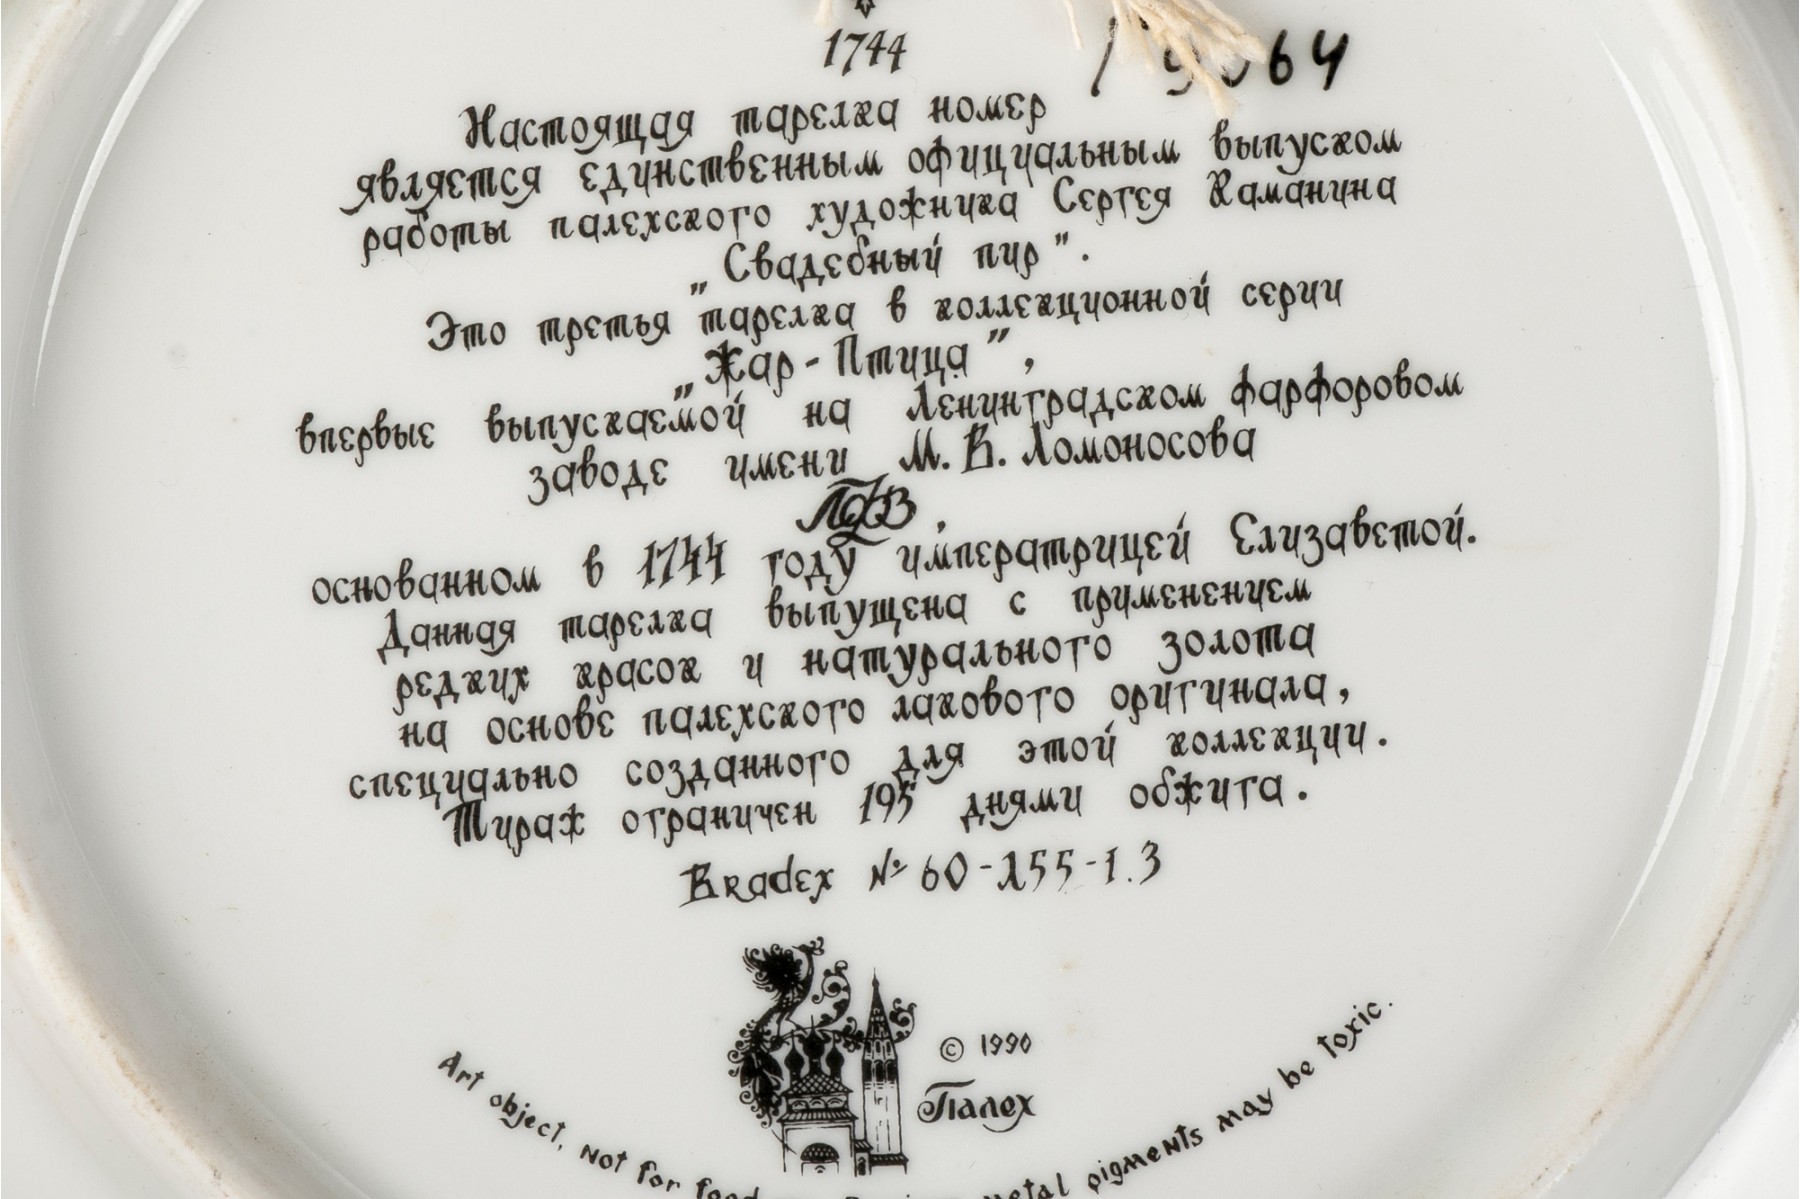 1744
Настоящая тарелка номер
является единственным официальным выпуском
работы палехского художника Сергея Каманина
„Свадебный пир".
Это третья тарелка в коллекционной серии
„Жар-Птица",
впервые выпускаемой на Ленинградском фарфоровом
заводе имени М. В. Ломоносова
ЛФЗ,
основанном в 1744 году императрицей Елизаветой.
Данная тарелка выпущена с применением
редких красок и натурального золота
на основе палехского лакового оригинала,
специально созданного для этой коллекции.
Тираж ограничен 195 днями обжига.
Bradex № 60-155-1.3
© 1990
Палех
Art object, not for food metal pigments may be toxic.